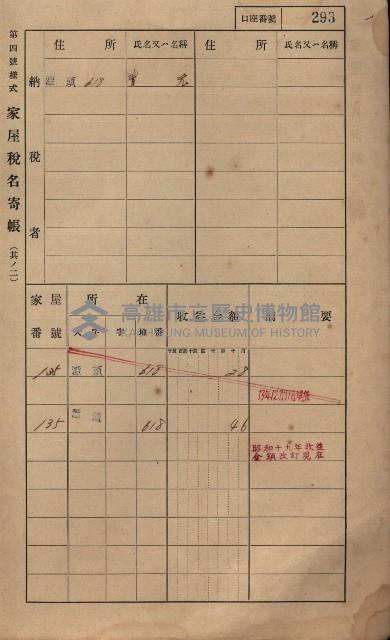 口座番號 293
第四號樣式 家屋稅名寄帳 (其ノ二)
住所 氏名又ハ名稱 住所 氏名又ハ名稱
納稅者
頭 618
家屋番號 所在 收益金額 摘要
大字 字 地番
高雄市立歷史博物館
KAOHSIUNG MUSEUM OF HISTORY
135 頭 618 28
135 頭 618 46
昭和十九年改進
金額改訂現在